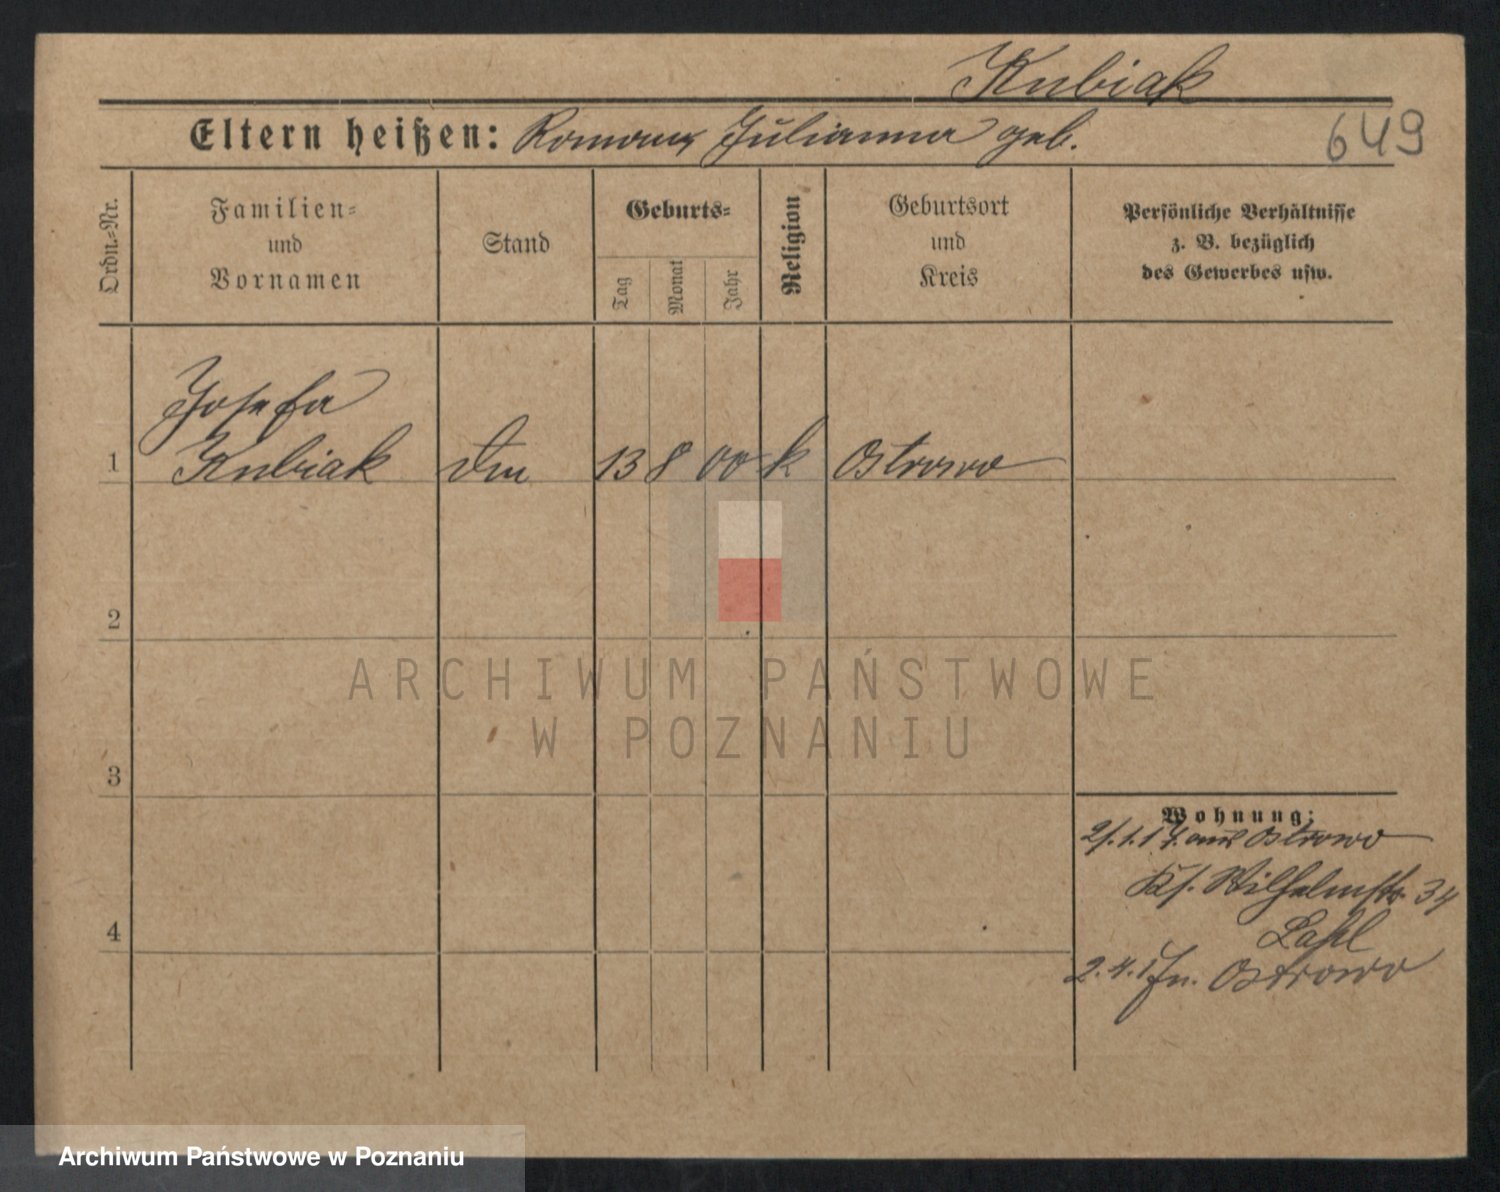 Kubiak
Eltern heißen: Roman Julianna geb.
649
Ordn.-Nr.
Familien-
und
Vornamen
Stand
Geburts-
Tag
Monat
Jahr
Religion
Geburtsort
und
Kreis
Persönliche Verhältnisse
z. B. bezüglich
des Gewerbes usw.
Josefa
1 Kubiak 13 8 00 k Ostrowo
2
3
4
Wohnung:
2/.1.17. aus Ostrowo
Wilhelmstr. 34
2.4.17 n. Ostrowo
ARCHIWUM PAŃSTWOWE
W POZNANIU
Archiwum Państwowe w Poznaniu